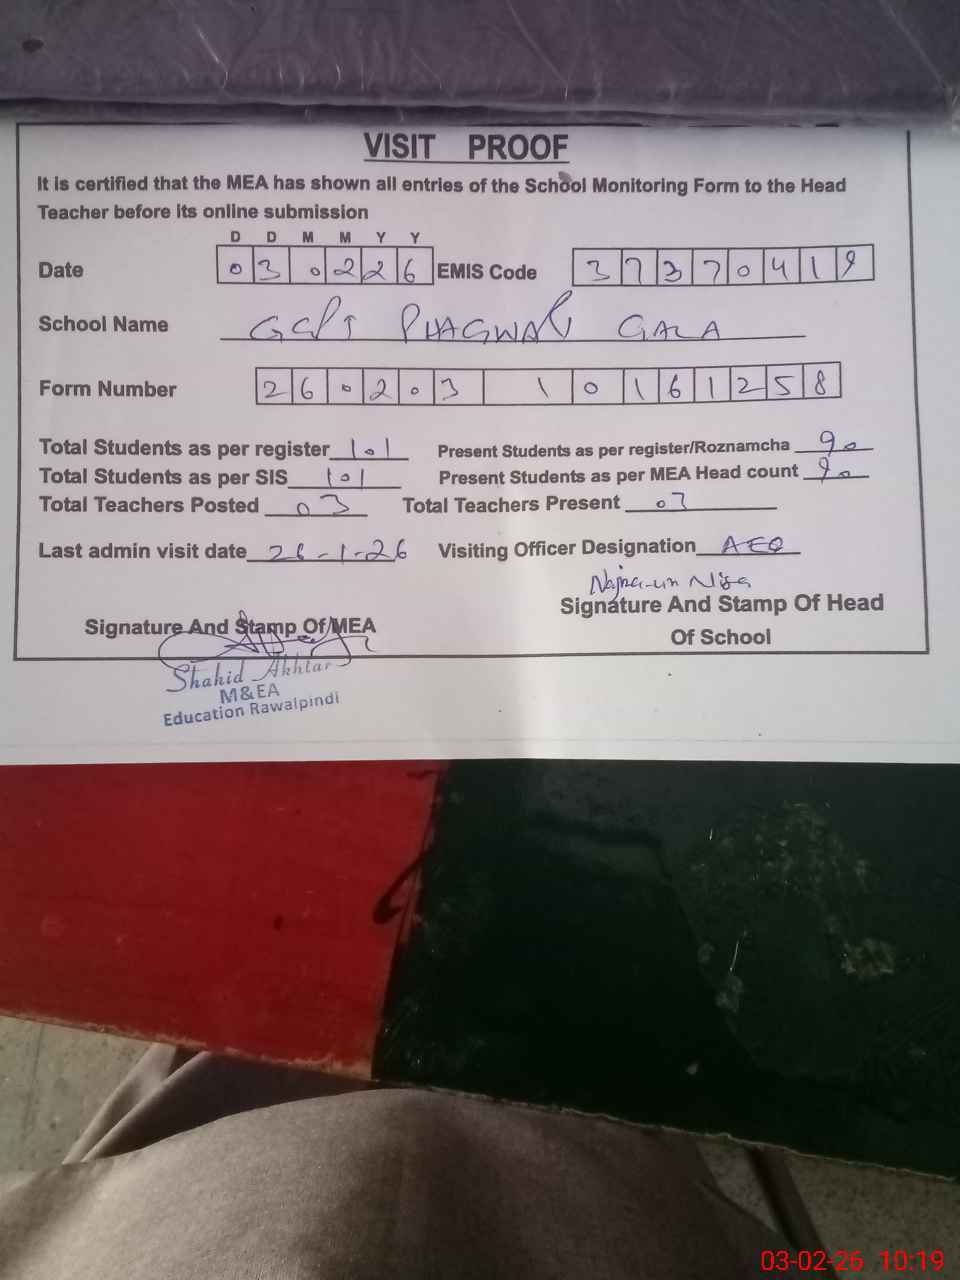 VISIT PROOF
It is certified that the MEA has shown all entries of the School Monitoring Form to the Head
Teacher before its online submission
D D M M Y Y
Date 03 02 26 EMIS Code 37370419
School Name PHAGWARI GALA
Form Number 260203 10161258
Total Students as per register 101 Present Students as per register/Roznamcha 90
Total Students as per SIS 101 Present Students as per MEA Head count 90
Total Teachers Posted 03 Total Teachers Present 03
Last admin visit date -1-26 Visiting Officer Designation AEO
Najma-un Nisa
Signature And Stamp Of MEA Signature And Stamp Of Head
Of School
Shahid Akhtar
M&EA
Education Rawalpindi
03-02-26 10:19